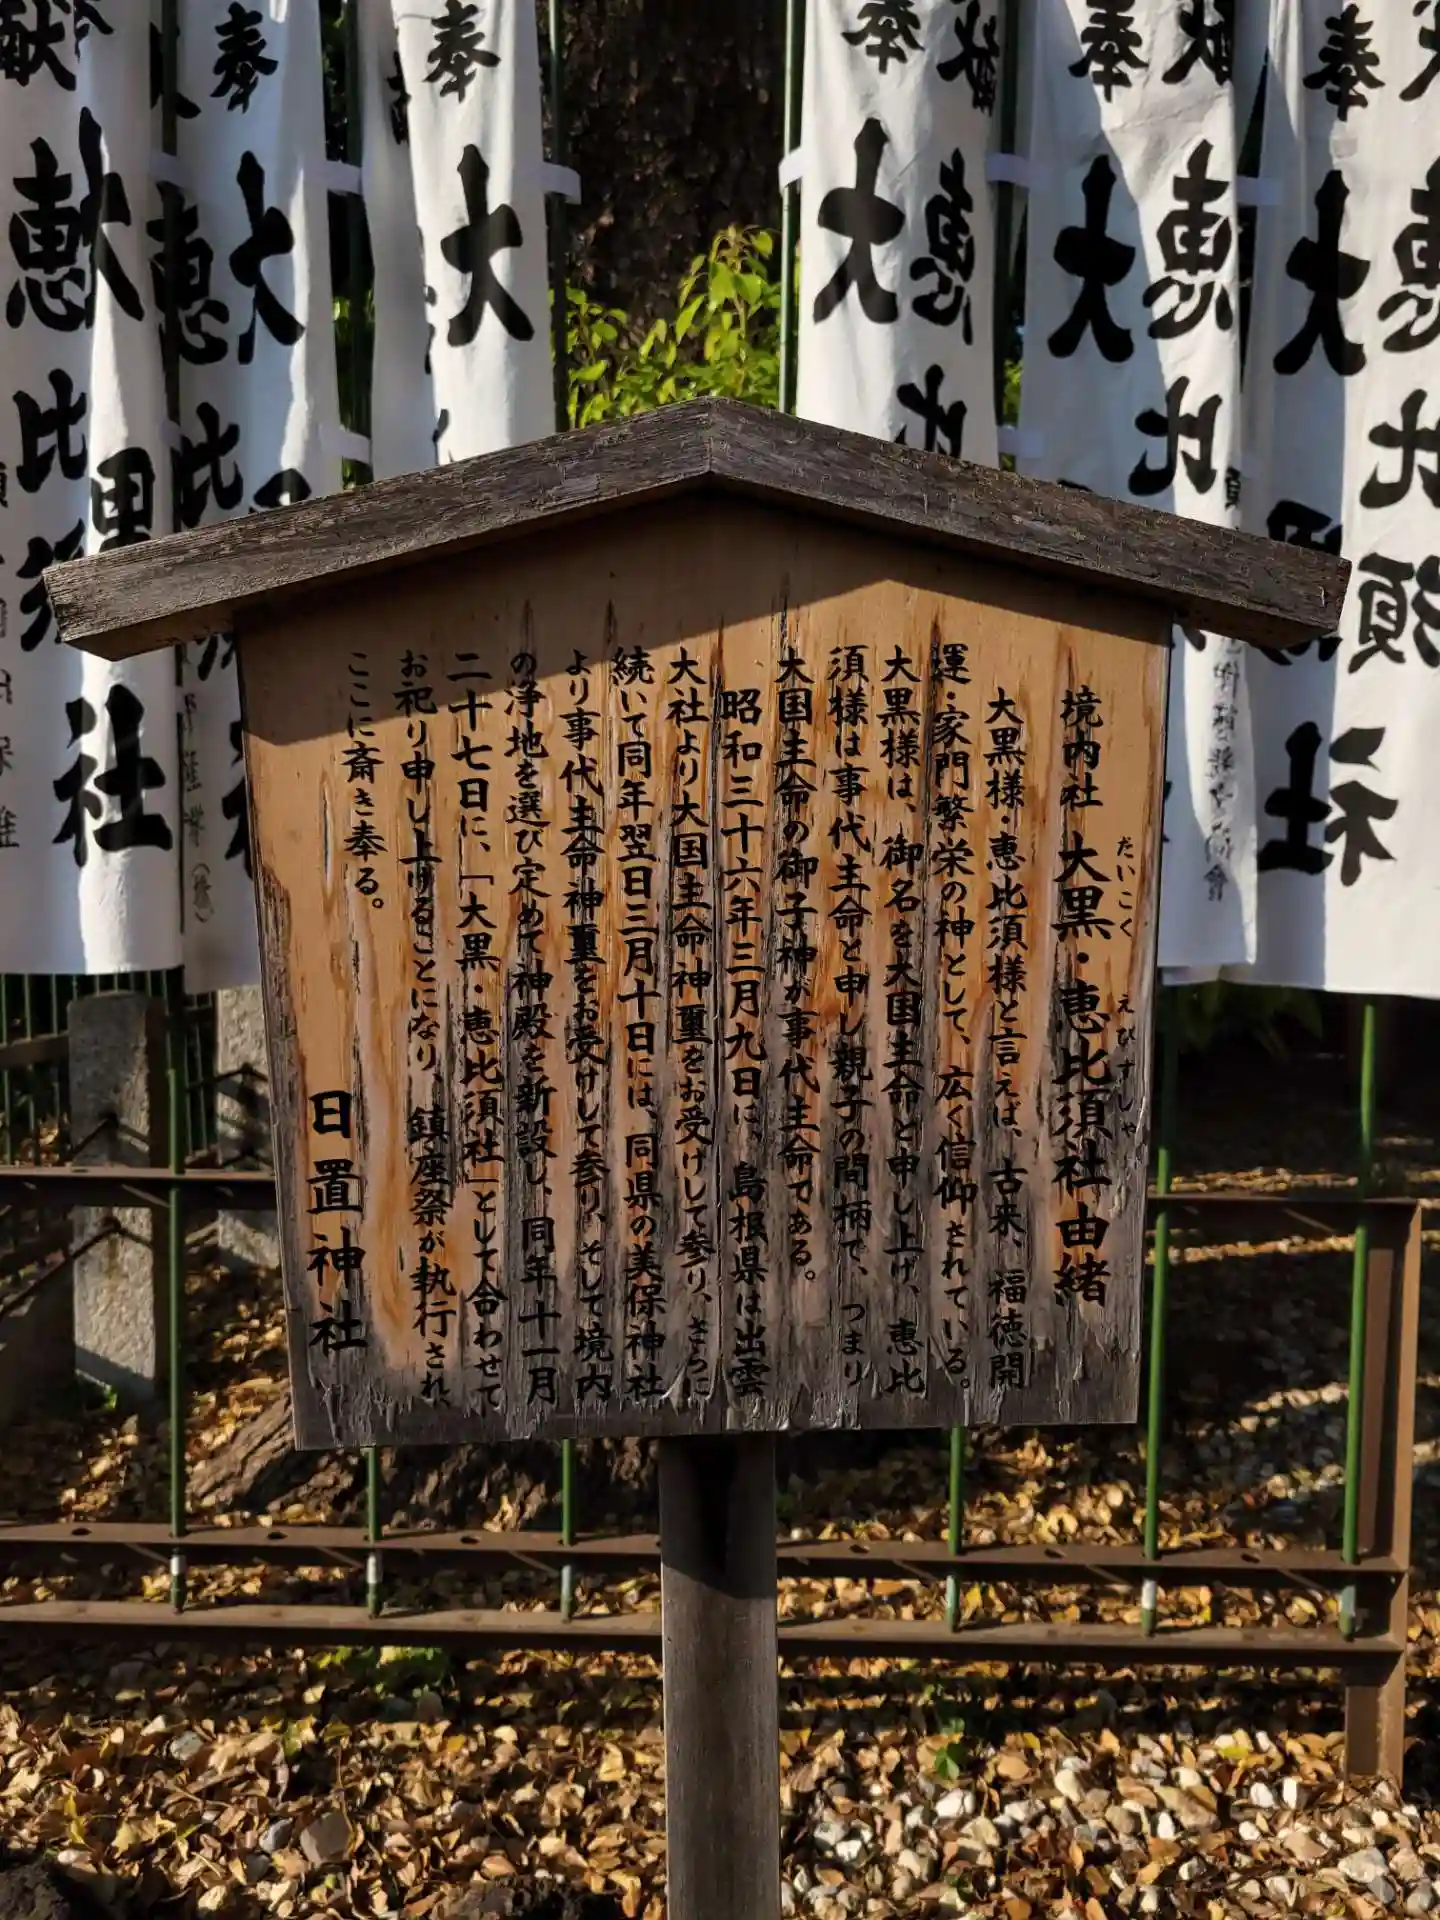 境内社 大黒・恵比須社由緒
だいこく えびすしゃ
大黒様・恵比須様と言えば、古来、福徳開
運・家門繁栄の神として、広く信仰されている。
大黒様は、御名を大国主命と申し上げ、恵比
須様は事代主命と申し親子の間柄で、つまり
大国主命の御子神が事代主命である。
昭和三十六年三月九日に、島根県は出雲
大社より大国主命神璽をお受けして参り、さらに
続いて同年翌日三月十日には、同県の美保神社
より事代主命神璽をお受けして参り、そして境内
の浄地を選び定めて神殿を新設し、同年十一月
二十七日に、「大黒・恵比須社」として合わせて
お祀り申し上げることになり、鎮座祭が執行され、
ここに斎き奉る。
日置神社
奉 大
献 恵比須社
奉 大
恵比須
奉 大
献 恵比
奉 大
奉 大
恵比
献 恵比須
大黒社